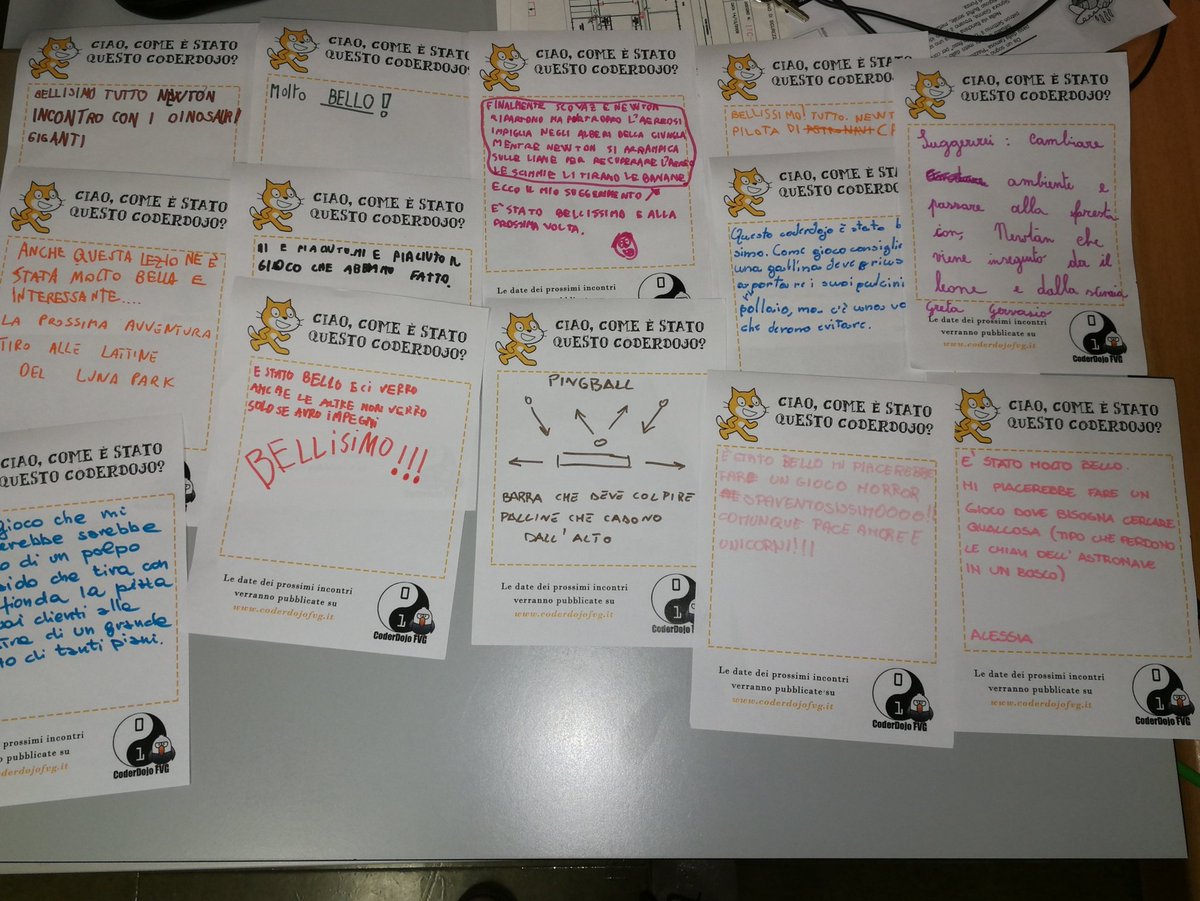 CIAO, COME È STATO
QUESTO CODERDOJO?
BELLISIMO TUTTO NEWTON
INCONTRO CON I DINOSAURI
GIGANTI
CIAO, COME È STATO
QUESTO CODERDOJO?
MOLTO BELLO!
CIAO, COME È STATO
QUESTO CODERDOJO?
FINALMENTE SCOVAZ E NEWTON
RIPARTONO MA PURTROPPO L'AEREO SI
IMPIGLIA NEGLI ALBERI DELLA GIUNGLA
MENTRE NEWTON SI ARRAMPICA
SULLE LIANE PER RECUPERARE L'AEREO
LE SCIMMIE LI TIRANO LE BANANE
ECCO IL MIO SUGGERIMENTO
E' STATO BELLISSIMO E ALLA
PROSSIMA VOLTA.
Le date dei prossimi incontri
CIAO, COME È STATO
QUESTO CODERDOJO?
BELLISSIMO! TUTTO. NEWT
PILOTA DI ASTRONAVI
CIAO, COME È STATO
QUESTO CODERDOJO?
Suggerirei: Cambiare
ambiente e
passare alla foresta
con, Newtan che
viene inseguito da il
leone e dalla scimmia
Greta Gervasio
Le date dei prossimi incontri
verranno pubblicate su
www.coderdojofvg.it
0
1
CoderDojo FVG
CIAO, COME È STATO
QUESTO CODERDOJO?
ANCHE QUESTA LEZIONE È
STATA MOLTO BELLA E
INTERESSANTE....
LA PROSSIMA AVVENTURA
TIRO ALLE LATTINE
DEL LUNA PARK
CIAO, COME È STATO
QUESTO CODERDOJO?
E PIACIUTO IL
GIOCO CHE ABBIAMO FATTO.
CIAO, COME È STATO
QUESTO CODERDOJO?
Questo coderdojo è stato b
simo. Come gioco consiglie
una gallina deve
portare i suoi pulcini
pollaio, ma c'è una vo
che devono evitare.
CIAO, COME È STATO
QUESTO CODERDOJO?
E STATO BELLO E CI VERRO
ANCHE LE ALTRE NON VERRO
SOLO SE AVRO IMPEGNI
BELLISIMO!!!
Le date dei prossimi incontri
verranno pubblicate su
www.coderdojofvg.it
0
1
CoderDojo FVG
PINGBALL
BARRA CHE DEVE COLPIRE
PALLINE CHE CADONO
DALL'ALTO
CIAO, COME È STATO
QUESTO CODERDOJO?
Le date dei prossimi incontri
verranno pubblicate su
www.coderdojofvg.it
0
1
CoderDojo FVG
CIAO, COME È STATO
QUESTO CODERDOJO?
È STATO BELLO MI PIACEREBBE
FARE UN GIOCO HORROR
SPAVENTOSISSIMOOOO!!
COMUNQUE PACE AMORE E
UNICORNI!!!
Le date dei prossimi incontri
verranno pubblicate su
www.coderdojofvg.it
0
1
CoderDojo FVG
CIAO, COME È STATO
QUESTO CODERDOJO?
E' STATO MOLTO BELLO.
MI PIACEREBBE FARE UN
GIOCO DOVE BISOGNA CERCARE
QUALCOSA (TIPO CHE PERDONO
LE CHIAVI DELL'ASTRONAVE
IN UN BOSCO)
ALESSIA
Le date dei prossimi incontri
verranno pubblicate su
www.coderdojofvg.it
0
1
CoderDojo FVG
CIAO, COME È STATO
QUESTO CODERDOJO?
gioco che mi
erebbe sarebbe
o di un polpo
sido che tira con
fionda la pizza
uoi clienti alla
di un grande
o di tanti piani.
prossimi incontri
pubblicate su
coderdojofvg.it
0
1
CoderDojo FVG